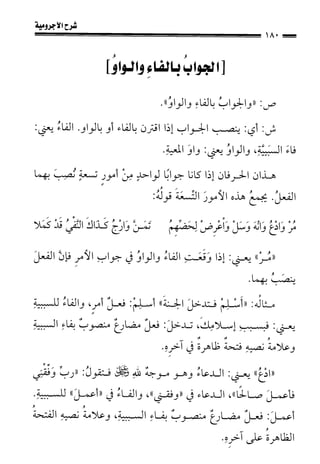 شرح الآجرومية
١٨٠
[الجوابُ بالفاءِ والواوُ]
ص: «والجوابُ بالفاءِ والواوُ».
ش: أي: ينصب الجواب إذا اقترن بالفاء أو بالواو. الفاءُ يعني:
فاءَ السببيَّةِ، والواوُ يعني: واوَ المعيةِ.
هذان الحرفان إذا كانا جوابًا لواحدٍ مِنْ أمورٍ تسعةٍ نُصِبَ بهما
الفعلُ. يجمعُ هذه الأمورَ التِّسعةَ قولُهُ:
مُرْ وَادْعُ وَانْهَ وَسَلْ وَاعْرِضْ لِحَضِّهِمُ تَمَنَّ وَارْجُ كَذَاكَ النَّفْيُ قَدْ كَمَلا
«مُرْ» يعني: إذا وَقَعَتِ الفاءُ والواوُ في جوابِ الأمرِ فإنَّ الفعلَ
ينصَبُ بهما.
مثالُه: «أَسْلِمْ فتدخلَ الجنةَ» أسلِمْ: فعلُ أمرٍ، والفاءُ للسببيةِ
يعني: فبسببِ إسلامِكَ، تدخلَ: فعلٌ مضارعٌ منصوبٌ بفاءِ السببيةِ
وعلامةُ نصبِهِ فتحةٌ ظاهرةٌ في آخرِهِ.
«ادْعُ» يعني: الدعاءُ وهو موجهٌ للهِ ﷻ فتقولُ: «ربِّ وَفِّقْنِي
فأعملَ صالحًا»، الدعاء في «وفقني»، والفاءُ في «أعملَ» للسببيةِ.
أعملَ: فعلٌ مضارعٌ منصوبٌ بفاءِ السببيةِ، وعلامةُ نصبِهِ الفتحةُ
الظاهرةُ على آخرِهِ.